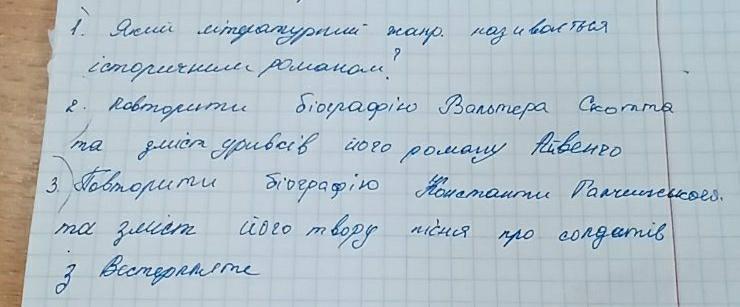 1. Який літературний жанр називається
історичним романом?
2. Повторити біографію Вальтера Скотта
та зміст уривків його роману Айвенго
3. Повторити біографію Константи Галчинського.
та зміст його твору пісня про солдатів
з Вестерпляте